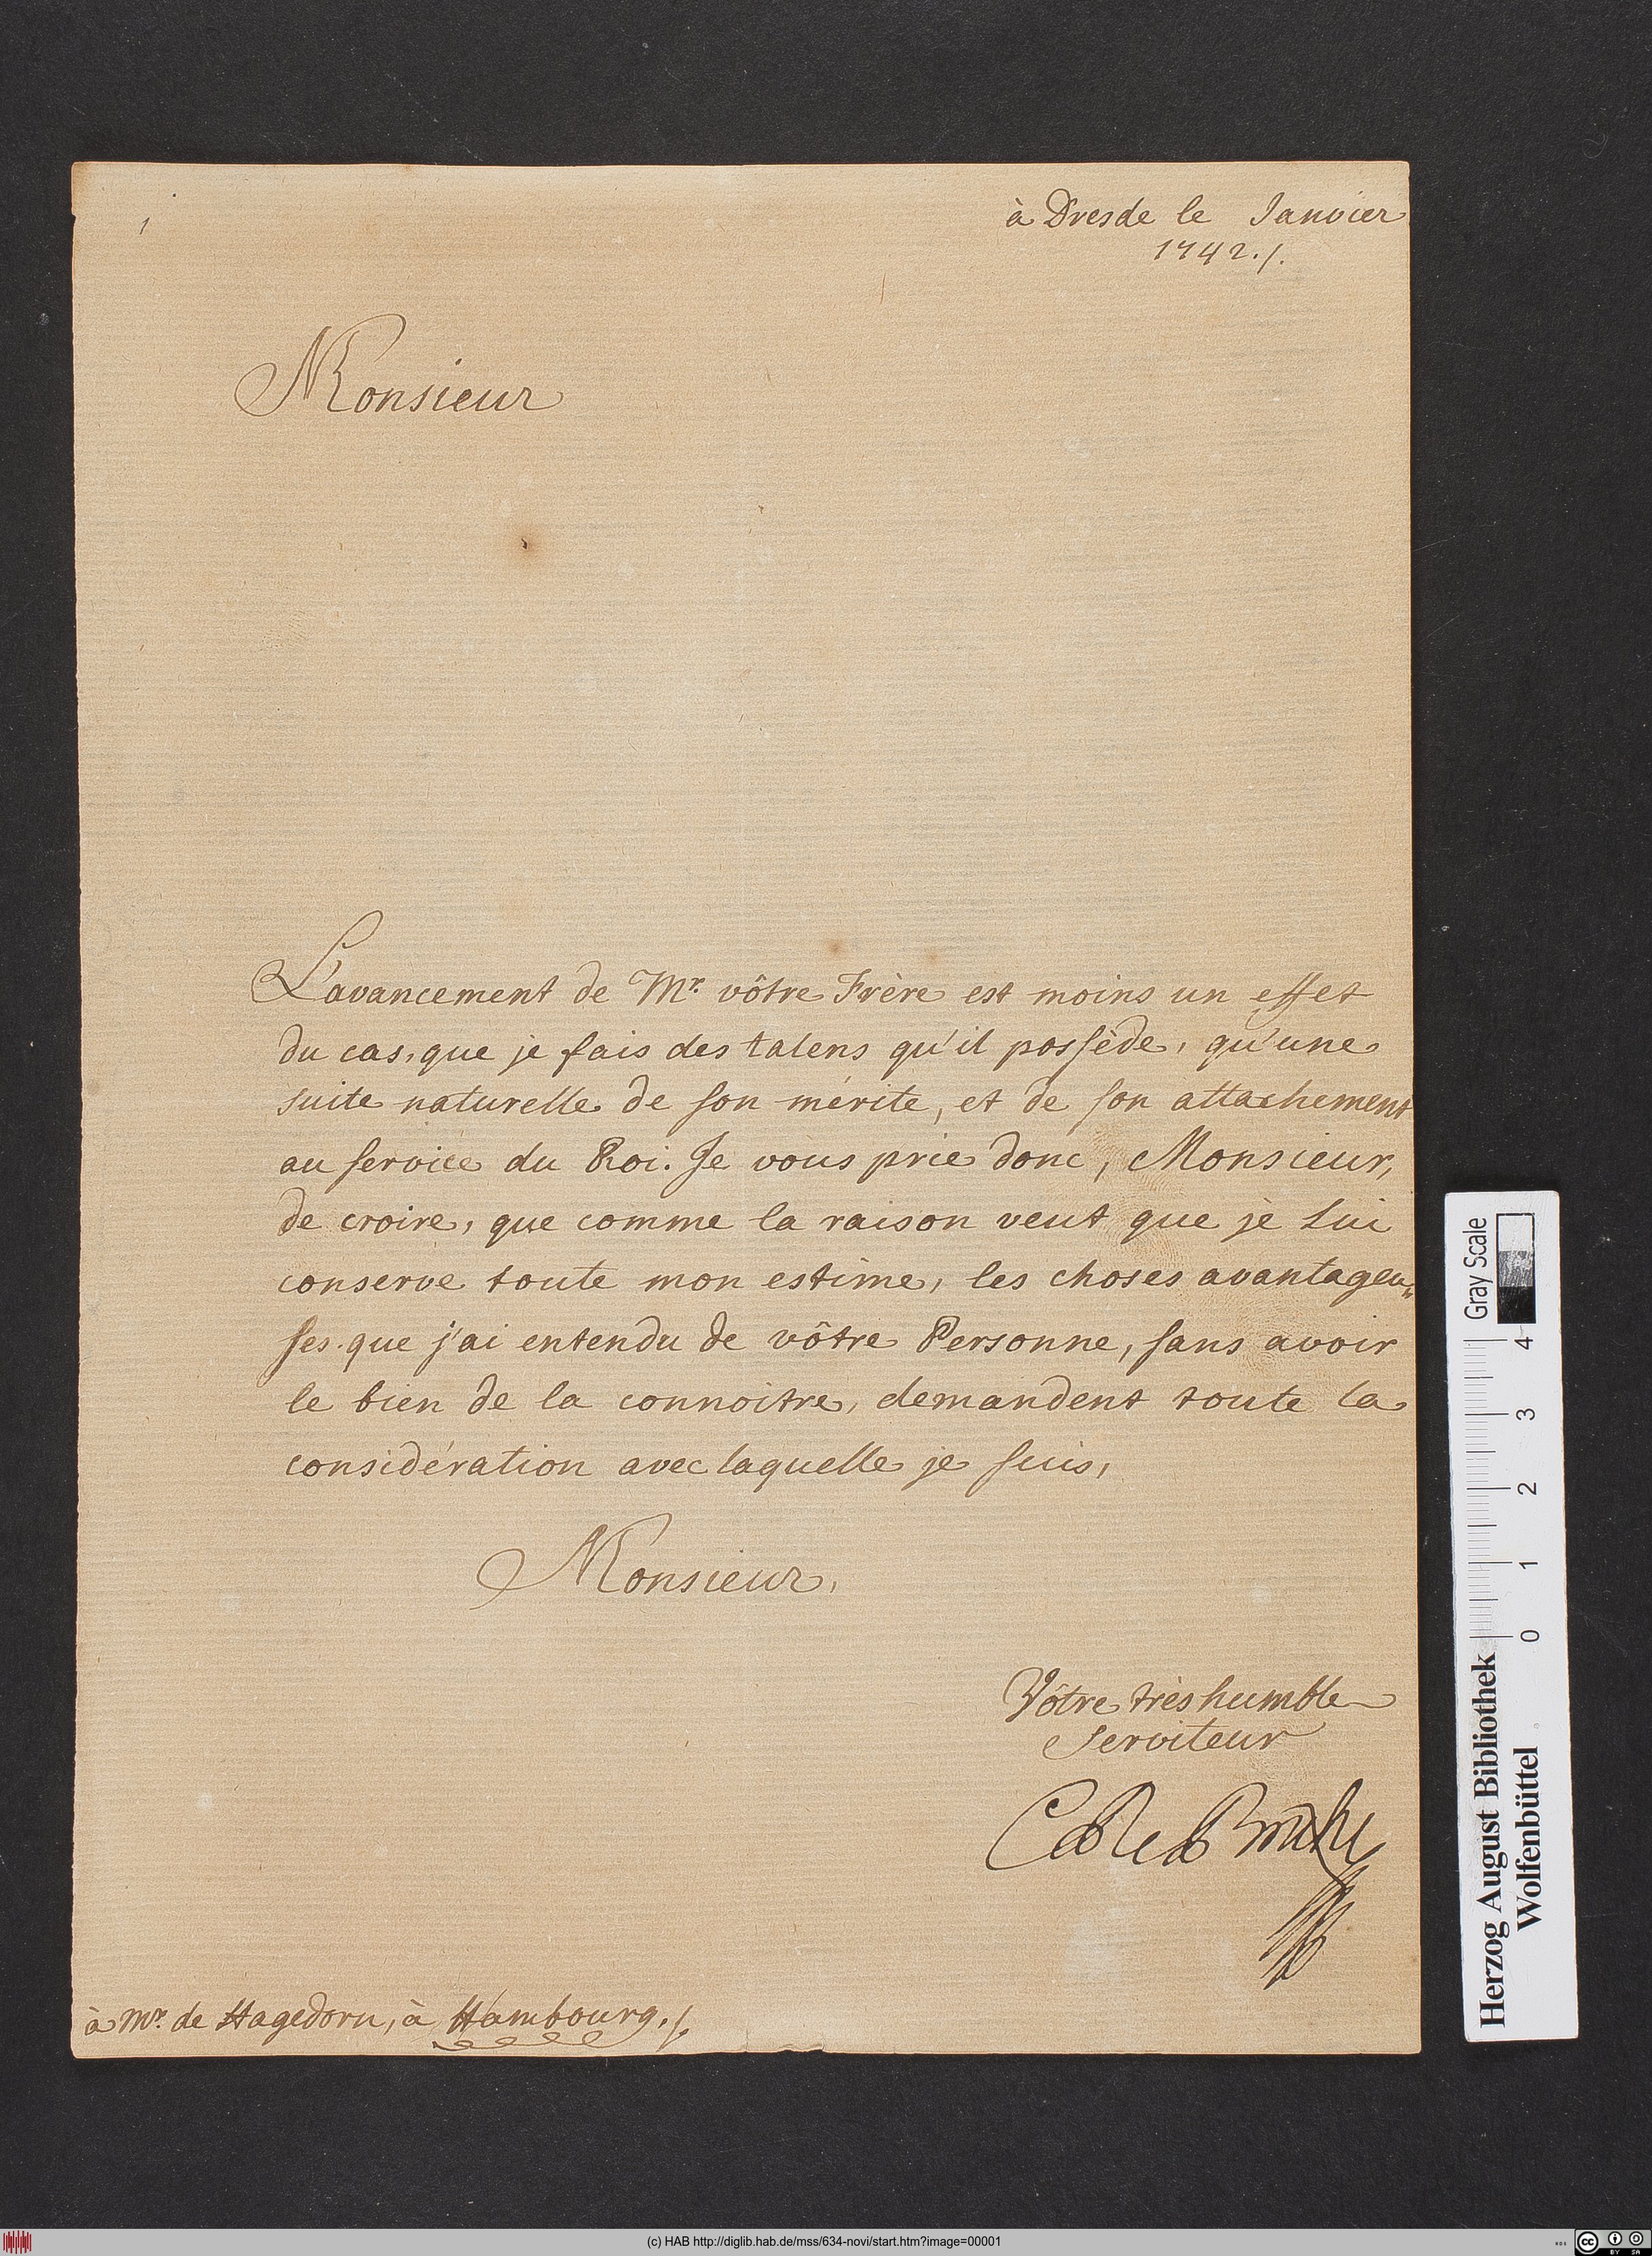 1
à Dresde le Janvier
1742./.
Monsieur
L'avancement de Mr. vôtre Frère est moins un effet
du cas, que je fais des talens qu'il possède, qu'une
suite naturelle de son mérite, et de son attachement
au service du Roi. Je vous prie donc, Monsieur,
de croire, que comme la raison veut que je lui
conserve toute mon estime, les choses avantageu„
ses que j'ai entendu de vôtre Personne, sans avoir
le bien de la connoitre, demandent toute la
considération avec laquelle je suis,
Monsieur,
Vôtre très humble
Serviteur
à Mr. de Hagedorn, à Hambourg./.
Gray Scale
4 3 2 1 0
Herzog August Bibliothek
Wolfenbüttel
(c) HAB http://diglib.hab.de/mss/634-novi/start.htm?image=00001
cc BY SA